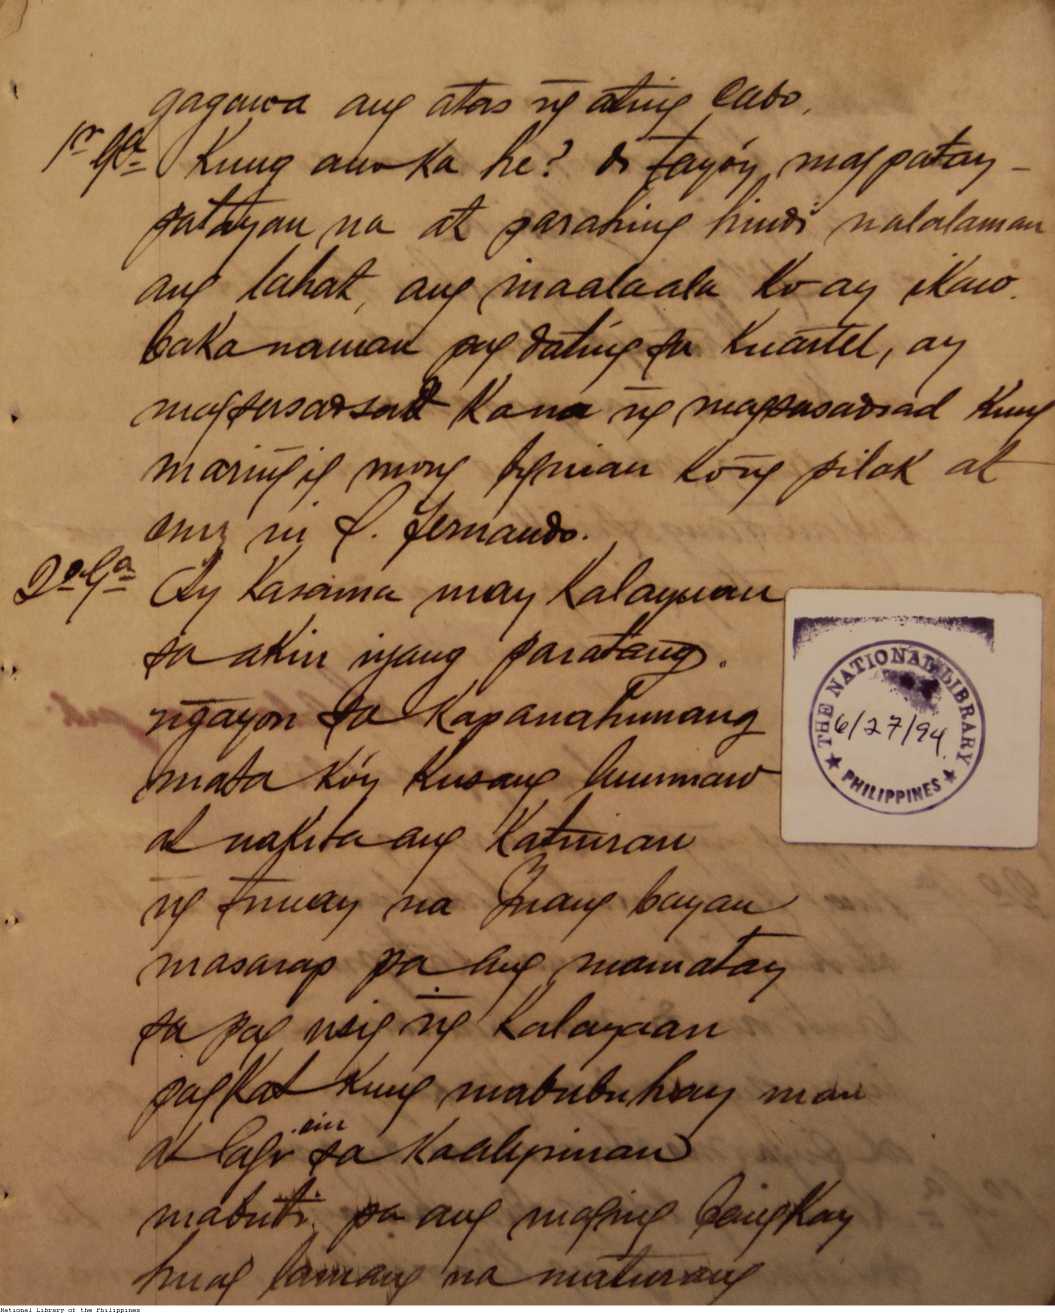 gagawa ang atas ng̃ ating Cabo.
1r Ga Kung ano ka he? di tayóy magpatay-
patayan na at parahing hindi nalalaman
ang lahat, ang inaalaala ko ay ikaw.
baka naman pag dating sa Kuartel, ay
magsasadsad ka na ng̃ magsasadsad kung
maring̃ig mong bigwan kong̃ pilak at
ni S. Fernando.
2o Ga Ay Kasama may kalayuan
sa akin niyang paratang.
ng̃ayon sa kapanahunang
mata kóy kusang lumināw
at nakita ang Katuiran
ng̃ tunay na Ynang bayan
masarap pa ang mamatay
sa pag usig ng̃ Kalayaan
pagkat kung mabubuhay man
at lagi ein sa Kaalipinan
mabuti pa ang maging bangkay
huag lamang na maturang
THE NATIONAL LIBRARY
6/27/94
PHILIPPINES
National Library of the Philippines